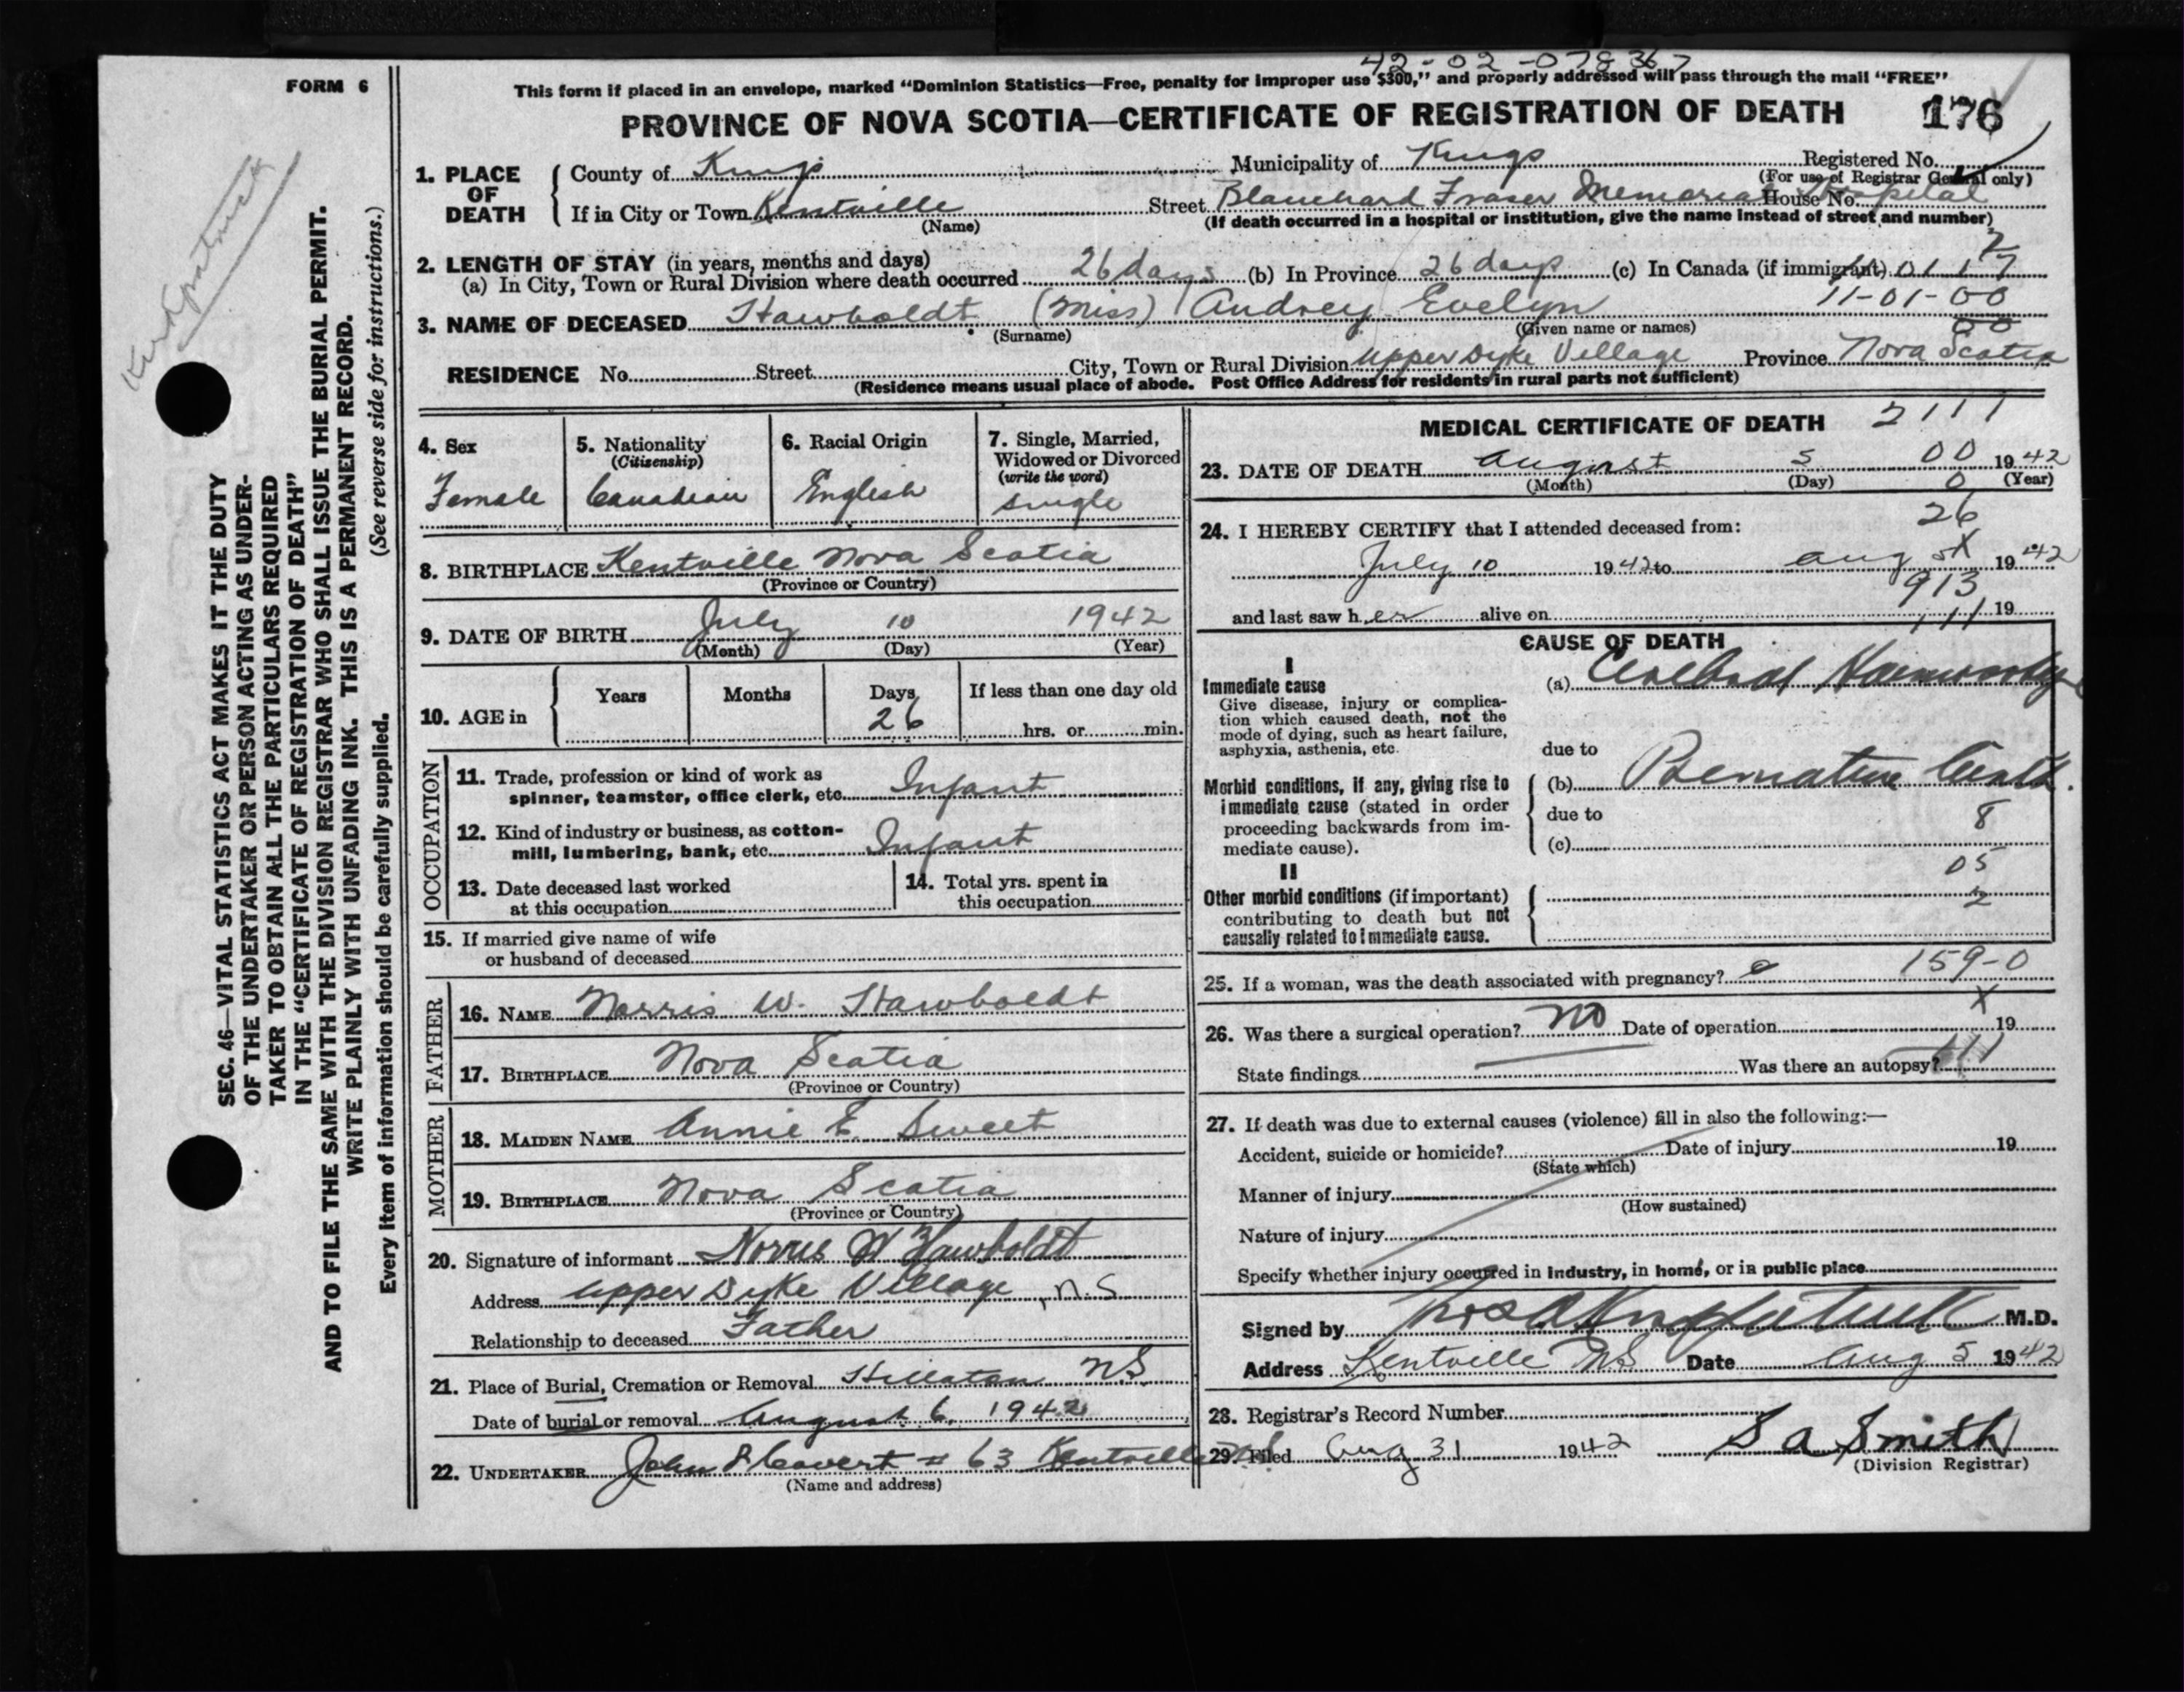 42-02-078367
FORM 6
This form if placed in an envelope, marked “Dominion Statistics—Free, penalty for improper use $300,” and properly addressed will pass through the mail “FREE”
PROVINCE OF NOVA SCOTIA—CERTIFICATE OF REGISTRATION OF DEATH 176
Kirkpatrick
SEC. 46—VITAL STATISTICS ACT MAKES IT THE DUTY
OF THE UNDERTAKER OR PERSON ACTING AS UNDER-
TAKER TO OBTAIN ALL THE PARTICULARS REQUIRED
IN THE “CERTIFICATE OF REGISTRATION OF DEATH”
AND TO FILE THE SAME WITH THE DIVISION REGISTRAR WHO SHALL ISSUE THE BURIAL PERMIT.
WRITE PLAINLY WITH UNFADING INK. THIS IS A PERMANENT RECORD.
(See reverse side for instructions.)
Every item of information should be carefully supplied.
1. PLACE OF DEATH
County of Kings Municipality of Kings Registered No.
(For use of Registrar General only)
If in City or Town Kentville Street Blanchard Fraser Memorial Hospital House No.
(Name) (If death occurred in a hospital or institution, give the name instead of street and number)
2. LENGTH OF STAY (in years, months and days)
(a) In City, Town or Rural Division where death occurred 26 days (b) In Province 26 days (c) In Canada (if immigrant)
11-01-00
00
3. NAME OF DECEASED Hawboldt (Miss) Audrey Evelyn
(Surname) (Given name or names)
RESIDENCE No. Street City, Town or Rural Division Upper Dyke Village Province Nova Scotia
(Residence means usual place of abode. Post Office Address for residents in rural parts not sufficient)
4. Sex
Female
5. Nationality
(Citizenship)
Canadian
6. Racial Origin
English
7. Single, Married,
Widowed or Divorced
(write the word)
single
8. BIRTHPLACE Kentville Nova Scotia
(Province or Country)
9. DATE OF BIRTH July 10 1942
(Month) (Day) (Year)
10. AGE in Years Months Days If less than one day old
26 hrs. or min.
OCCUPATION
11. Trade, profession or kind of work as
spinner, teamster, office clerk, etc. Infant
12. Kind of industry or business, as cotton-
mill, lumbering, bank, etc. Infant
13. Date deceased last worked
at this occupation
14. Total yrs. spent in
this occupation
15. If married give name of wife
or husband of deceased
FATHER
16. NAME Norris W. Hawboldt
17. BIRTHPLACE Nova Scotia
(Province or Country)
MOTHER
18. MAIDEN NAME Annie E. Sweet
19. BIRTHPLACE Nova Scotia
(Province or Country)
20. Signature of informant Norris W Hawboldt
Address Upper Dyke Village, N.S
Relationship to deceased Father
21. Place of Burial, Cremation or Removal Hillaton N.S.
Date of burial or removal August 6, 1942
22. UNDERTAKER John S Covert # 63 Kentville N.S.
(Name and address)
MEDICAL CERTIFICATE OF DEATH 2111
23. DATE OF DEATH August 5 00 1942
(Month) (Day) 0 (Year)
26
24. I HEREBY CERTIFY that I attended deceased from:
July 10 1942 to Aug 5 1942
913
and last saw her alive on 19
111
CAUSE OF DEATH
I
Immediate cause
Give disease, injury or complica-
tion which caused death, not the
mode of dying, such as heart failure,
asphyxia, asthenia, etc.
(a) Cerebral Haemorrhage
due to
Morbid conditions, if any, giving rise to
immediate cause (stated in order
proceeding backwards from im-
mediate cause).
(b) Premature birth.
due to 8
(c)
II 05
Other morbid conditions (if important) 2
contributing to death but not
causally related to immediate cause.
25. If a woman, was the death associated with pregnancy? 159-0
X
26. Was there a surgical operation? No Date of operation 19
State findings Was there an autopsy?
27. If death was due to external causes (violence) fill in also the following:—
Accident, suicide or homicide? Date of injury 19
(State which)
Manner of injury
(How sustained)
Nature of injury
Specify whether injury occurred in industry, in home, or in public place
Signed by M.D.
Address Kentville NS Date Aug 5 1942
28. Registrar's Record Number
29. Filed Aug 31 1942 S A Smith
(Division Registrar)